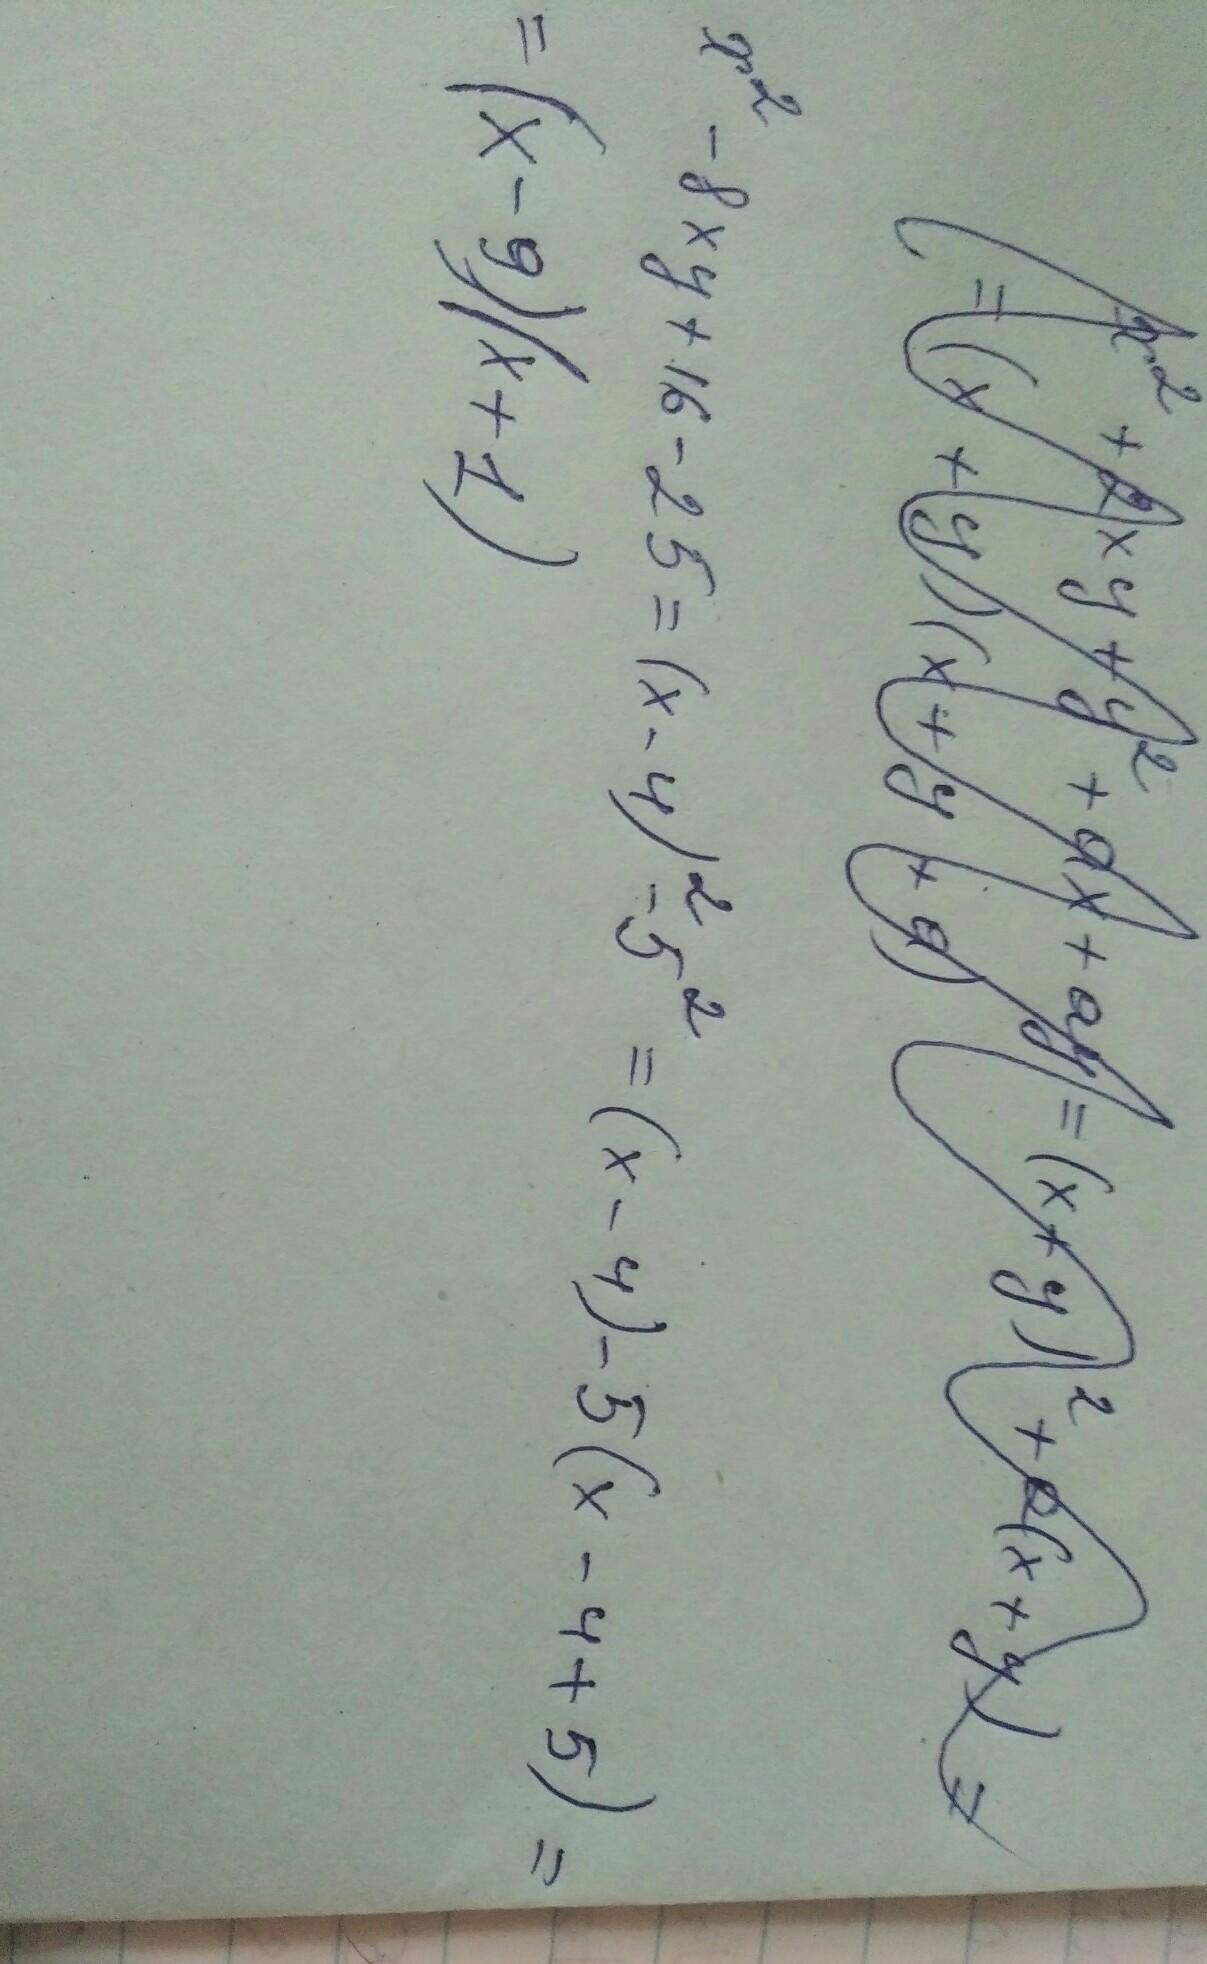 x² + 2xy + y² + ax + ay = (x + y)² + a(x + y) =
= (x + y)(x + y + a)
x² - 8xy + 16 - 25 = (x - 4)² - 5² = (x - 4) - 5(x - 4 + 5) =
= (x - 9)(x + 1)